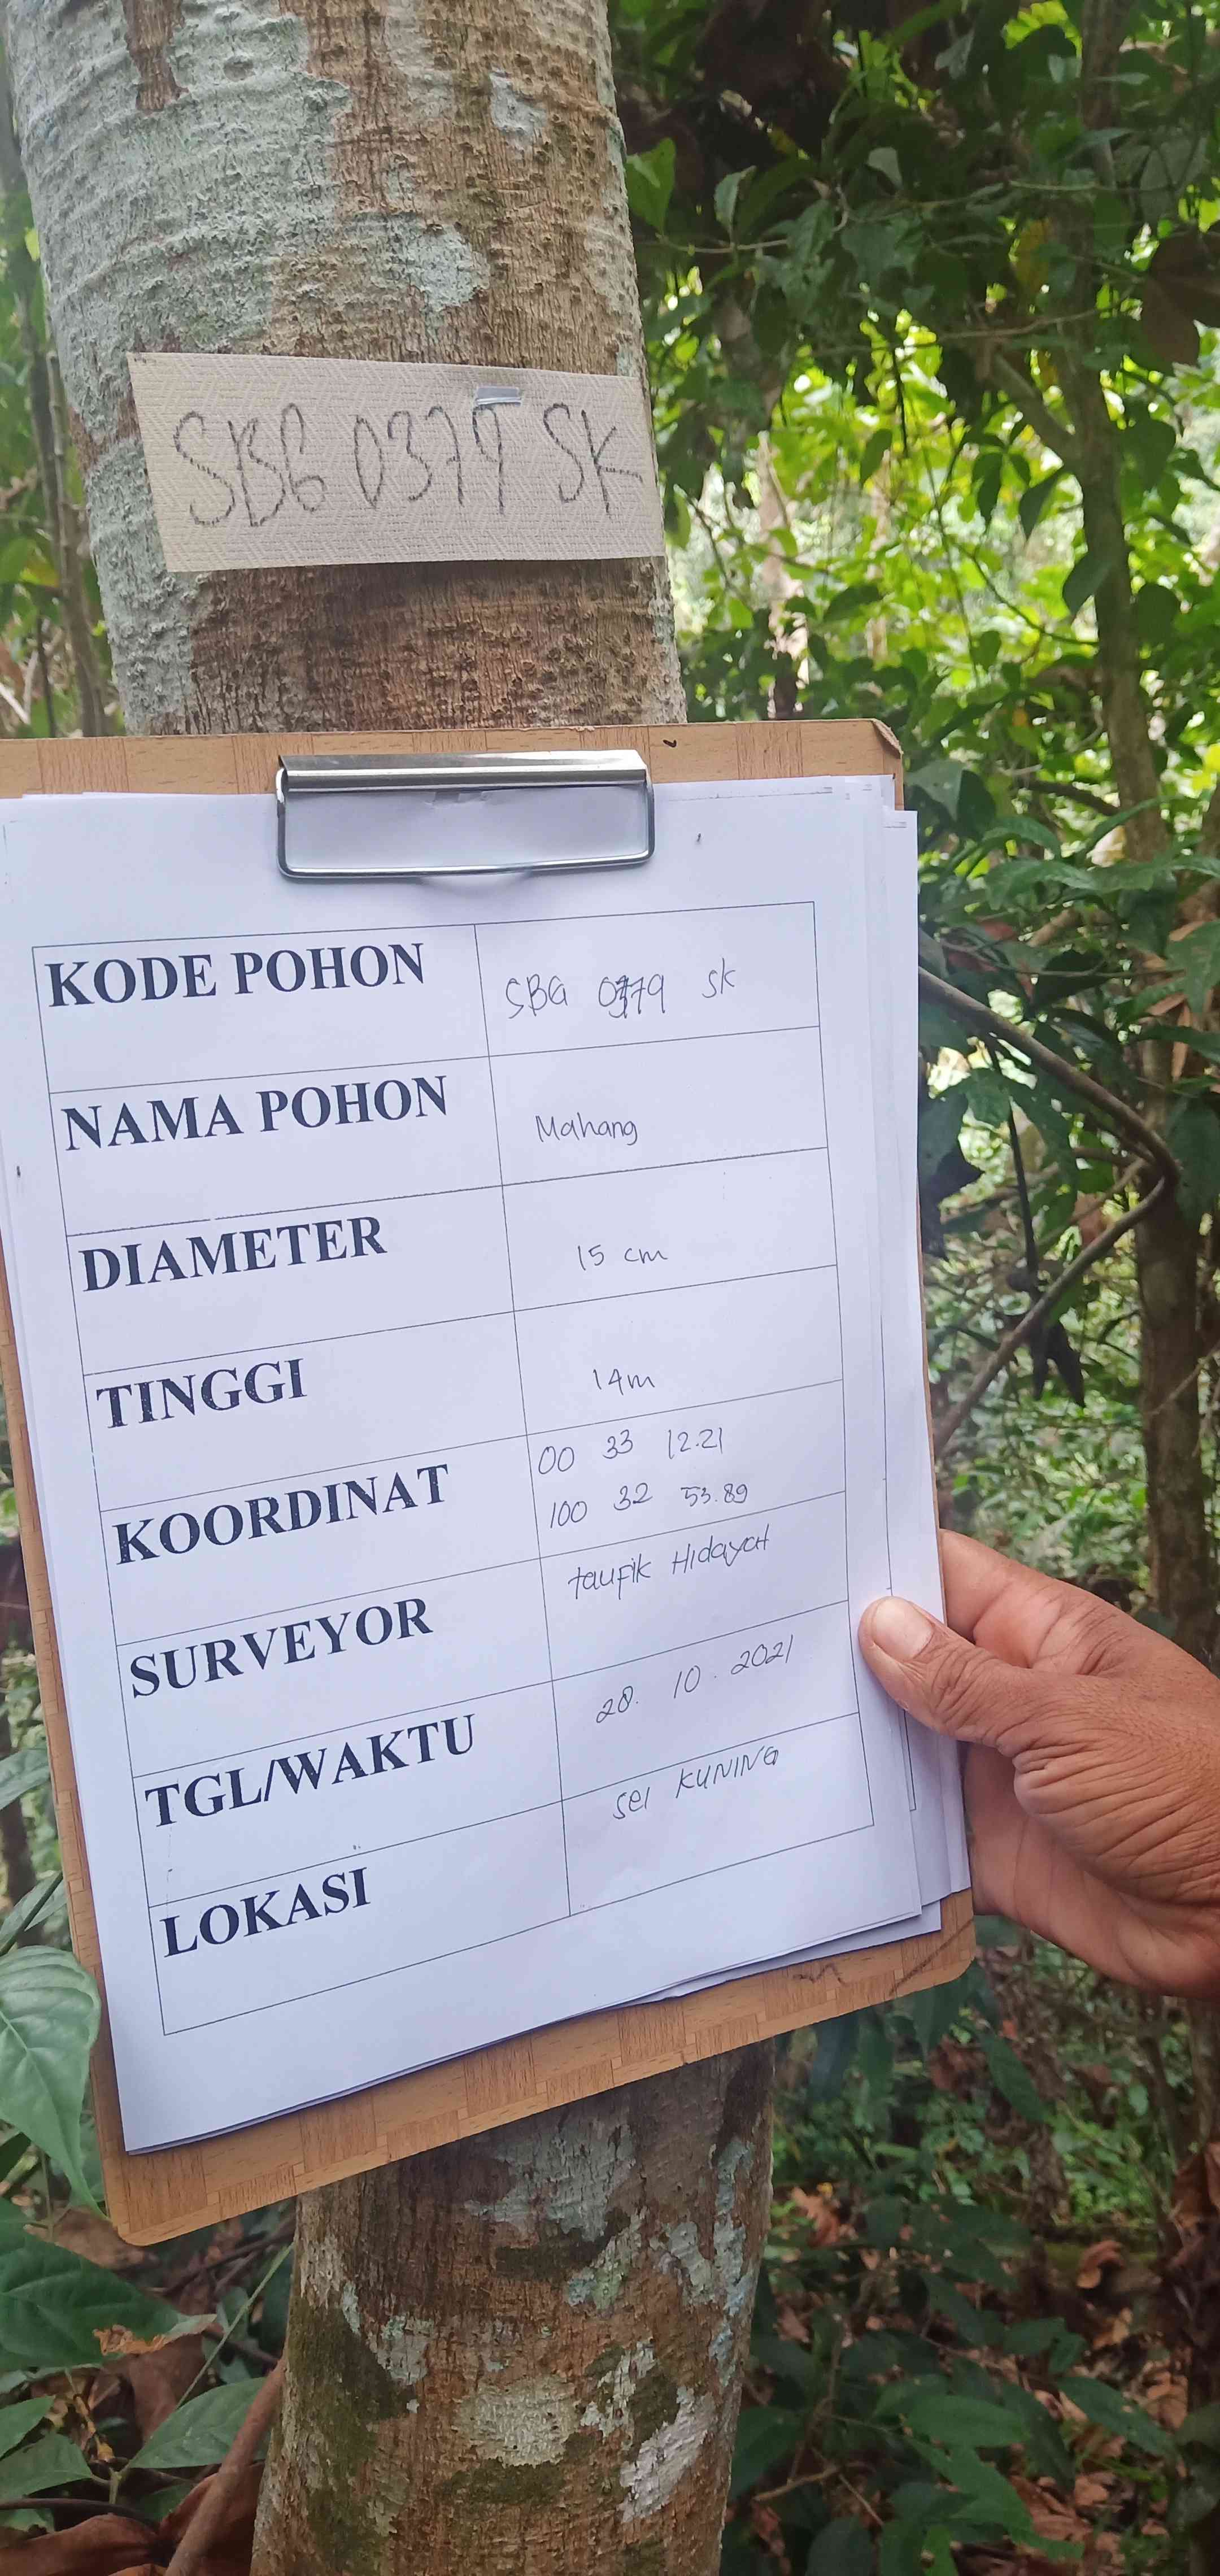 SBG 0379 SK
KODE POHON
SBG 0379 SK
NAMA POHON
Mahang
DIAMETER
15 cm
TINGGI
14m
KOORDINAT
00 33 12.21
100 32 53.89
SURVEYOR
taufik Hidayat
TGL/WAKTU
28. 10. 2021
LOKASI
Sei KUNING